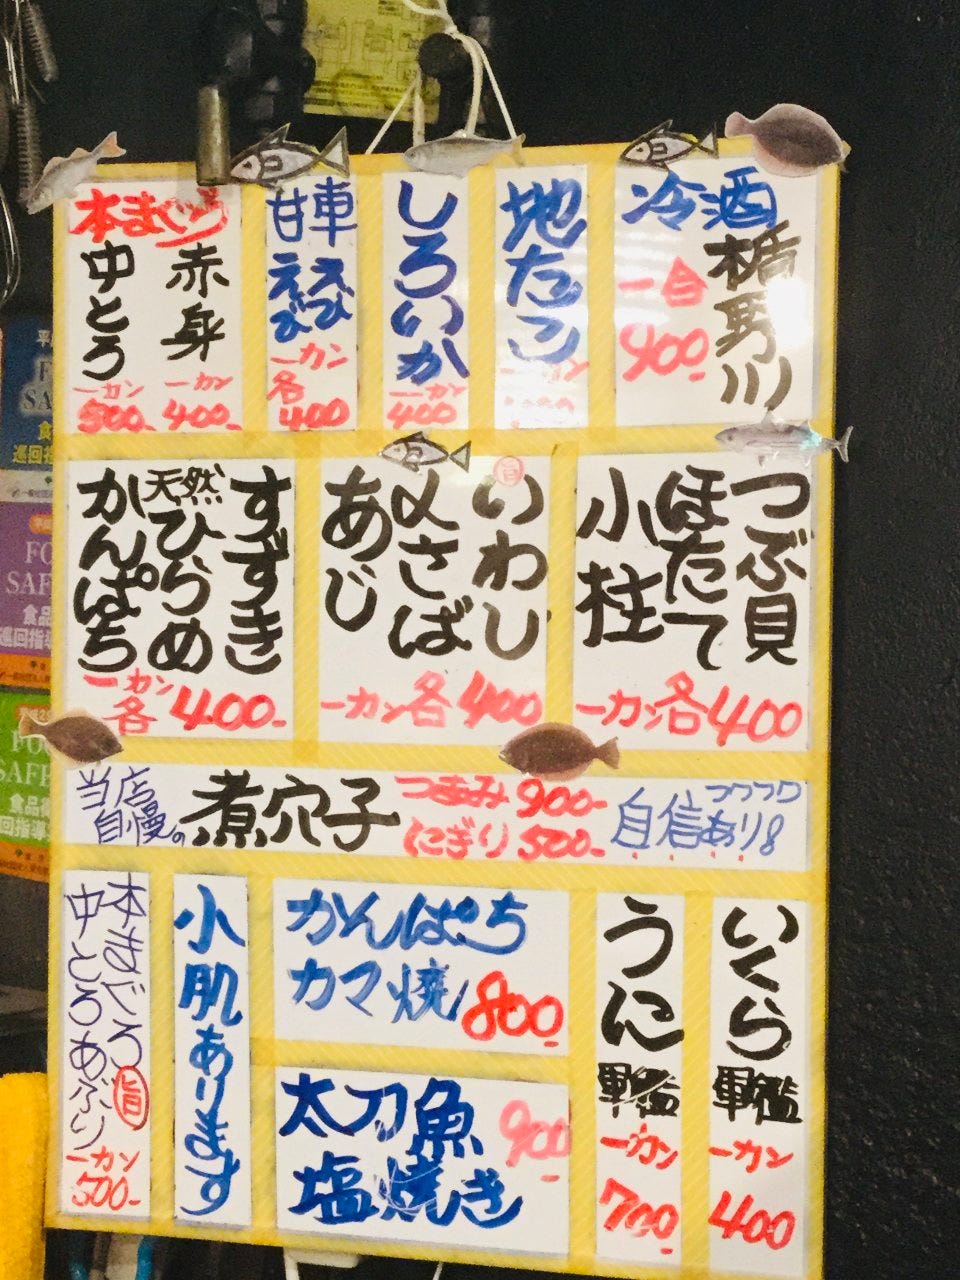 冷酒
楯野川
一合
900-
地たこ
一カン
しろいか
一カン
400
車えび
甘えび
一カン
各
400
本まぐろ
赤身
一カン
400-
中とろ
一カン
500-
つぶ貝
ほたて
小柱
一カン各400
旨
いわし
〆さば
あじ
一カン各400
すずき
天然ひらめ
かんぱち
一カン
各400-
当店
自慢の
煮穴子
つまみ900-
にぎり500-
フワフワ
自信あり!
いくら
軍艦
一カン
400
うに
軍艦
一カン
700
かんぱち
カマ焼
800-
太刀魚
塩焼き
900-
小肌あります
本まぐろ
旨
中とろあぶり
一カン
500-
FO
SAF
食品
巡回指導